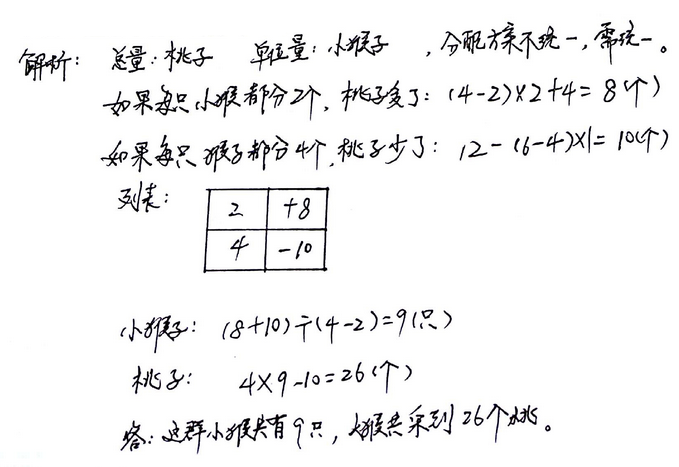 解析: 总量:桃子 单位量:小猴子 ,分配方案不统一,需统一。
如果每只小猴都分2个,桃子多了:(4-2)×2+4=8(个)
如果每只猴子都分4个,桃子少了:12-(6-4)×1=10(个)
列表:
2 +8
4 -10
小猴子: (8+10)÷(4-2)=9(只)
桃子: 4×9-10=26(个)
答:这群小猴共有9只,猴共采到26个桃。